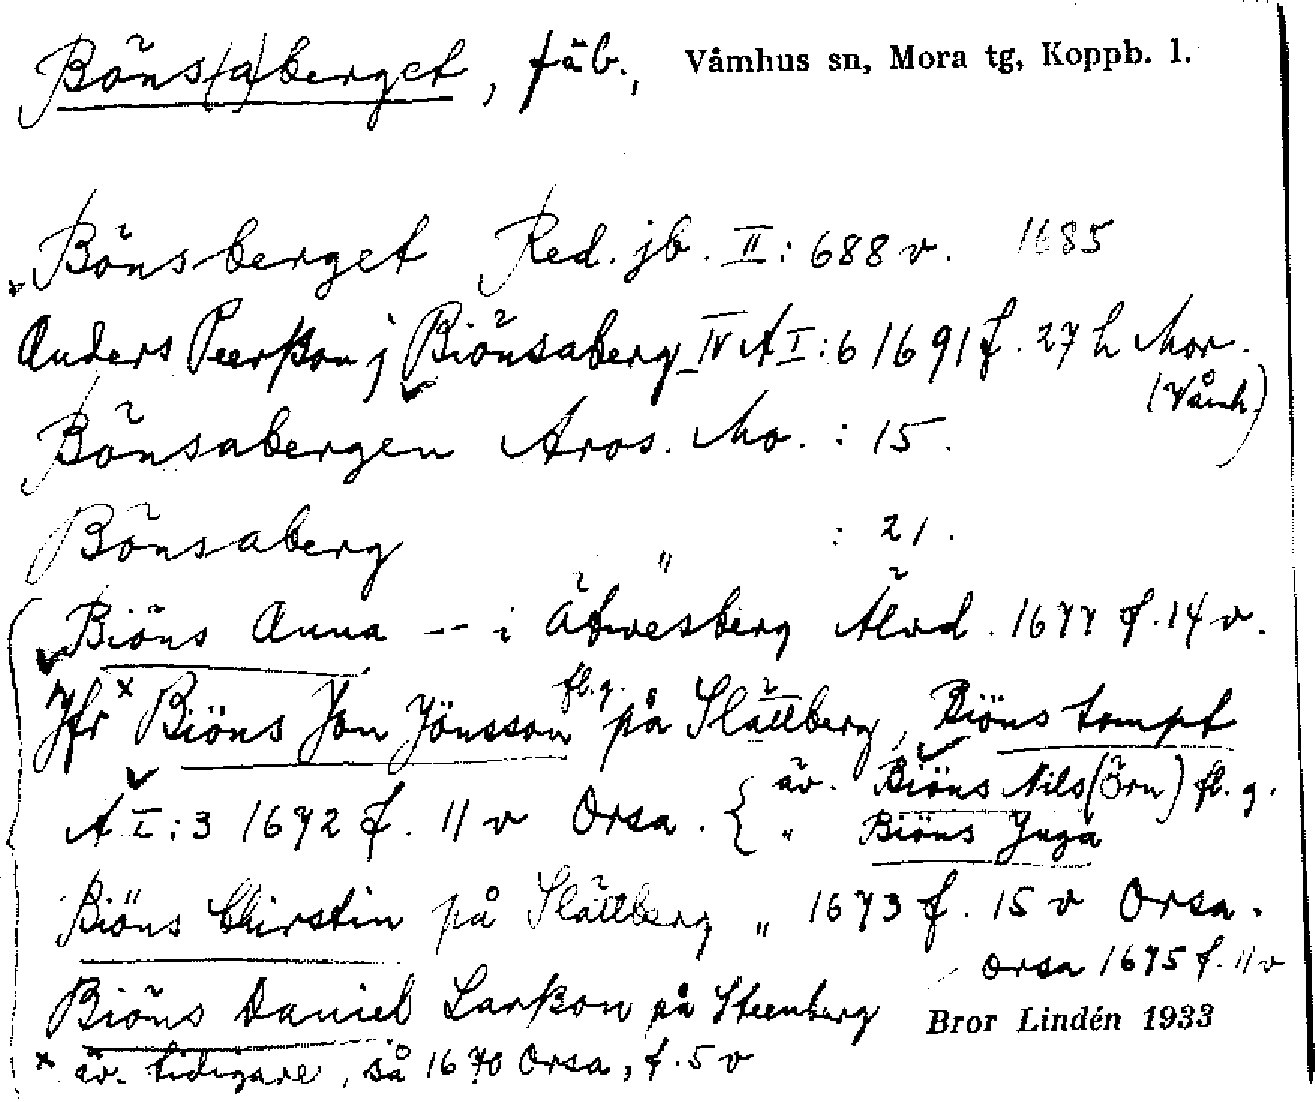 Böns(a)berget, fäb., Våmhus sn, Mora tg, Koppb. l.
Bönsberget Red. jb. II: 688 v. 1685
Anders Peerßon j Biönsaberg IV A I:6 1691 f. 27 h Mor.
(Våmh.)
Bönsabergen Aros. Mo. : 15.
Bönsaberg " : 21.
Biöns Anna -- i Åtwesberg Älvd. 1677 f. 14 v.
Jfr x Biöns Jon Jönsson fl.g. på Slättberg, Biöns tompt
A I:3 1672 f. 11 v Orsa. { äv. Biöns Nils (Örn) fl. g.
" Biöns Inga
Biöns Chirstin på Slättberg " 1673 f. 15 v Orsa.
Orsa 1675 f. 11 v
Biöns Daniel Larßon på Steenberg
Bror Lindén 1933
x äv. tidigare, så 1670 Orsa, f. 5 v